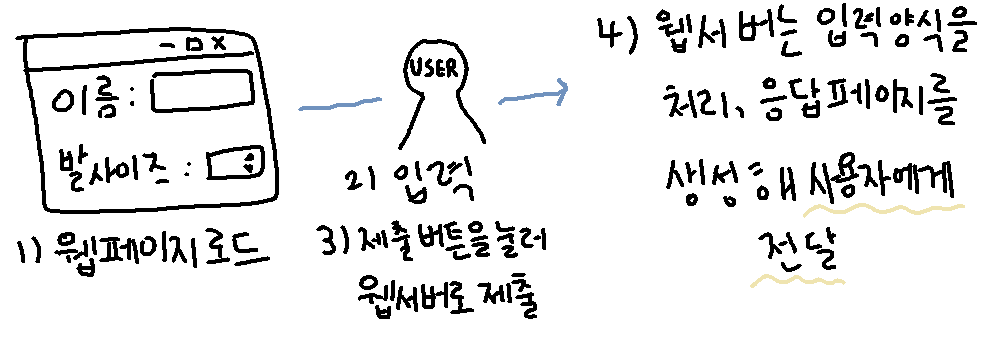 이름:
발사이즈:
1) 웹페이지로드
USER
2) 입력
3) 제출버튼을눌러
웹서버로 제출
4) 웹서버는 입력양식을
처리, 응답페이지를
생성해 사용자에게
전달